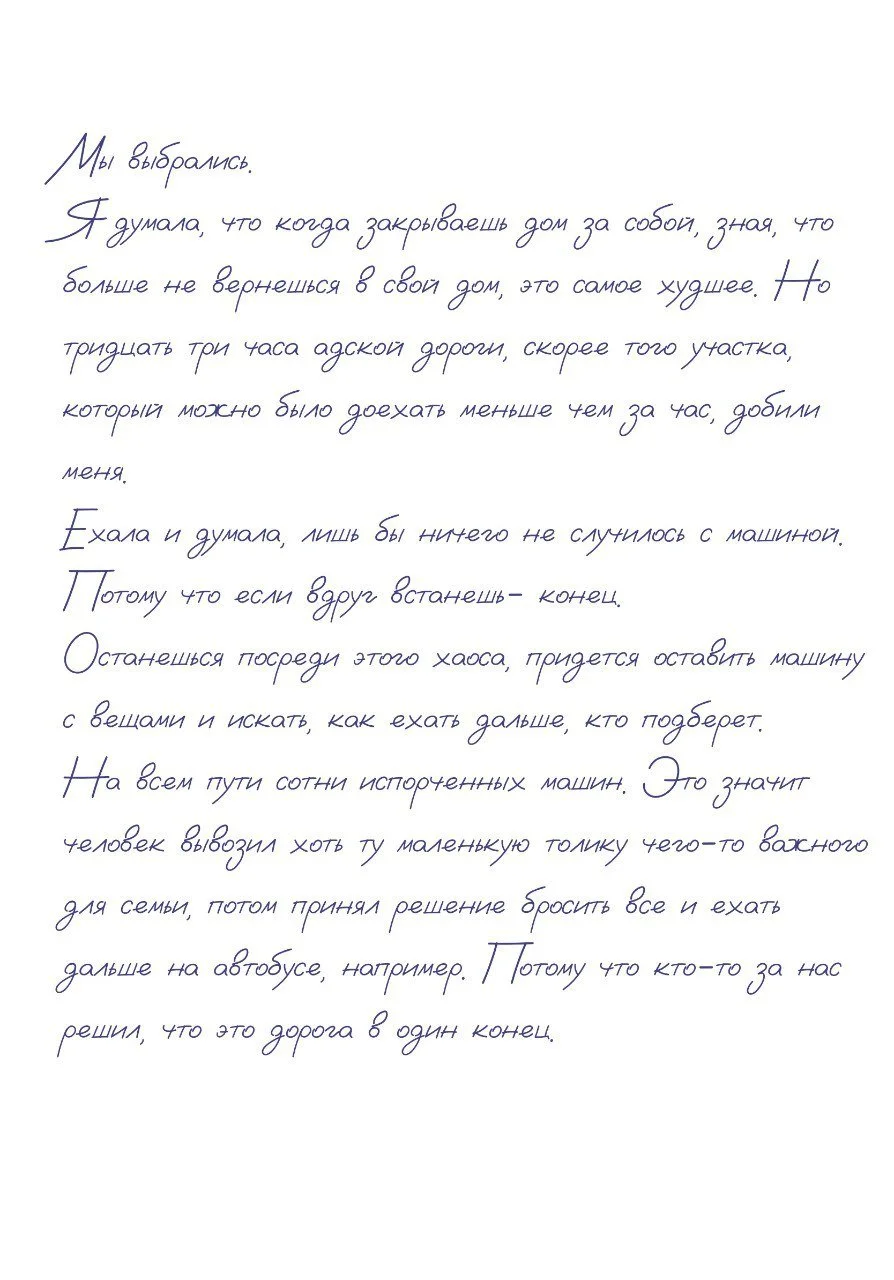 Мы выбрались.
Я думала, что когда закрываешь дом за собой, зная, что
больше не вернешься в свой дом, это самое худшее. Но
тридцать три часа адской дороги, скорее того участка,
который можно было доехать меньше чем за час, добили
меня.
Ехала и думала, лишь бы ничего не случилось с машиной.
Потому что если вдруг встанешь- конец.
Останешься посреди этого хаоса, придется оставить машину
с вещами и искать, как ехать дальше, кто подберет.
На всем пути сотни испорченных машин. Это значит
человек вывозил хоть ту маленькую толику чего-то важного
для семьи, потом принял решение бросить все и ехать
дальше на автобусе, например. Потому что кто-то за нас
решил, что это дорога в один конец.